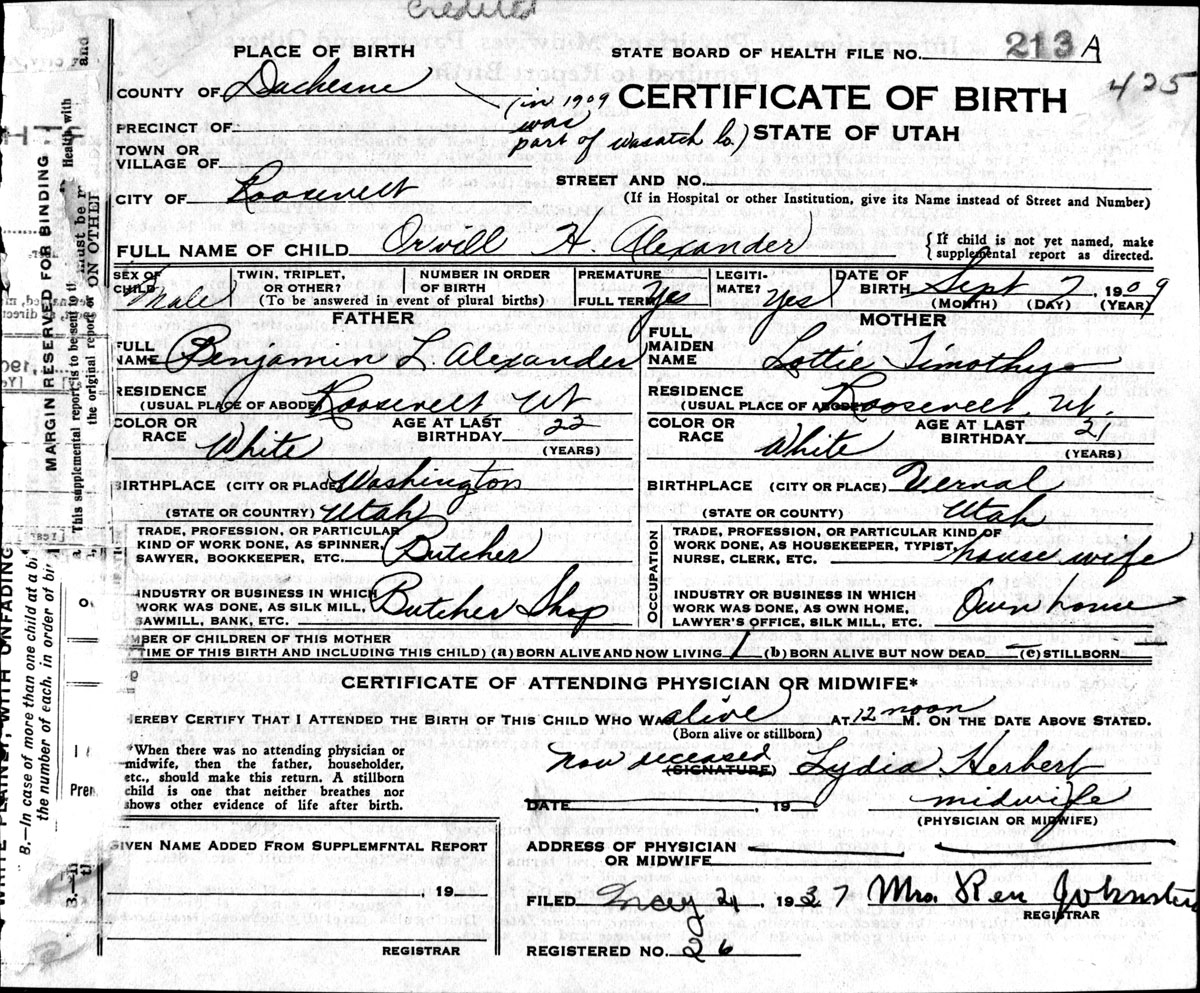 Credited
PLACE OF BIRTH
STATE BOARD OF HEALTH FILE NO. 213 A
425
COUNTY OF Duchesne
(in 1909
was
part of Wasatch Co.)
CERTIFICATE OF BIRTH
STATE OF UTAH
PRECINCT OF
TOWN OR
VILLAGE OF
CITY OF Roosevelt
STREET AND NO.
(If in Hospital or other Institution, give its Name instead of Street and Number)
FULL NAME OF CHILD Orvill H. Alexander
{If child is not yet named, make
supplemental report as directed.
SEX OF
CHILD Male
TWIN, TRIPLET,
OR OTHER?
(To be answered in event of plural births)
NUMBER IN ORDER
OF BIRTH
PREMATURE
FULL TERM Yes
LEGITI-
MATE? Yes
DATE OF
BIRTH Sept 7, 1909
(MONTH) (DAY) (YEAR)
FATHER
FULL
NAME Benjamin L Alexander
RESIDENCE
(USUAL PLACE OF ABODE) Roosevelt, Ut
COLOR OR
RACE White
AGE AT LAST
BIRTHDAY 22
(YEARS)
BIRTHPLACE (CITY OR PLACE) Washington
(STATE OR COUNTRY) Utah
TRADE, PROFESSION, OR PARTICULAR
KIND OF WORK DONE, AS SPINNER,
SAWYER, BOOKKEEPER, ETC. Butcher
INDUSTRY OR BUSINESS IN WHICH
WORK WAS DONE, AS SILK MILL,
SAWMILL, BANK, ETC. Butcher Shop
MOTHER
FULL
MAIDEN
NAME Lottie Timothy
RESIDENCE
(USUAL PLACE OF ABODE) Roosevelt, Ut.
COLOR OR
RACE White
AGE AT LAST
BIRTHDAY 21
(YEARS)
BIRTHPLACE (CITY OR PLACE) Vernal
(STATE OR COUNTY) Utah
OCCUPATION
TRADE, PROFESSION, OR PARTICULAR KIND OF
WORK DONE, AS HOUSEKEEPER, TYPIST,
NURSE, CLERK, ETC. house wife
INDUSTRY OR BUSINESS IN WHICH
WORK WAS DONE, AS OWN HOME,
LAWYER'S OFFICE, SILK MILL, ETC. Own house
MBER OF CHILDREN OF THIS MOTHER
TIME OF THIS BIRTH AND INCLUDING THIS CHILD) (a) BORN ALIVE AND NOW LIVING 1 (b) BORN ALIVE BUT NOW DEAD — (c) STILLBORN —
CERTIFICATE OF ATTENDING PHYSICIAN OR MIDWIFE*
HEREBY CERTIFY THAT I ATTENDED THE BIRTH OF THIS CHILD WHO WAS alive AT 12 noon M. ON THE DATE ABOVE STATED.
(Born alive or stillborn)
*When there was no attending physician or
midwife, then the father, householder,
etc., should make this return. A stillborn
child is one that neither breathes nor
shows other evidence of life after birth.
now deceased (SIGNATURE) Lydia Herbert
DATE , 19
midwife
(PHYSICIAN OR MIDWIFE)
ADDRESS OF PHYSICIAN
OR MIDWIFE
GIVEN NAME ADDED FROM SUPPLEMFNTAL REPORT
, 19
REGISTRAR
FILED May 21, 1937 Mrs. Ren Johnston
REGISTRAR
REGISTERED NO. 26
MARGIN RESERVED FOR BINDING
WRITE PLAINLY, WITH UNFADING
B.—In case of more than one child at a bi
the number of each, in order of bir
a. This supplemental report is to be sent t
the original report
must be r
ON OTHER
Health with
and